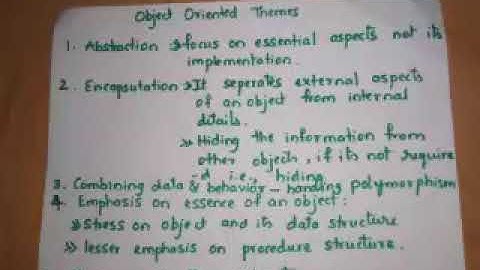 Object Oriented Themes
1. Abstraction → focus on essential aspects not its
implementation.
2. Encapsutation → It seperates external aspects
of an object from internal
details.
» Hiding the information from
other objects, if its not require
-d i.e., hiding
3. Combining data & behavior – handing polymorphism
4. Emphasis on essence of an object:
» Stress on object and its data structure
» lesser emphasis on procedure structure.